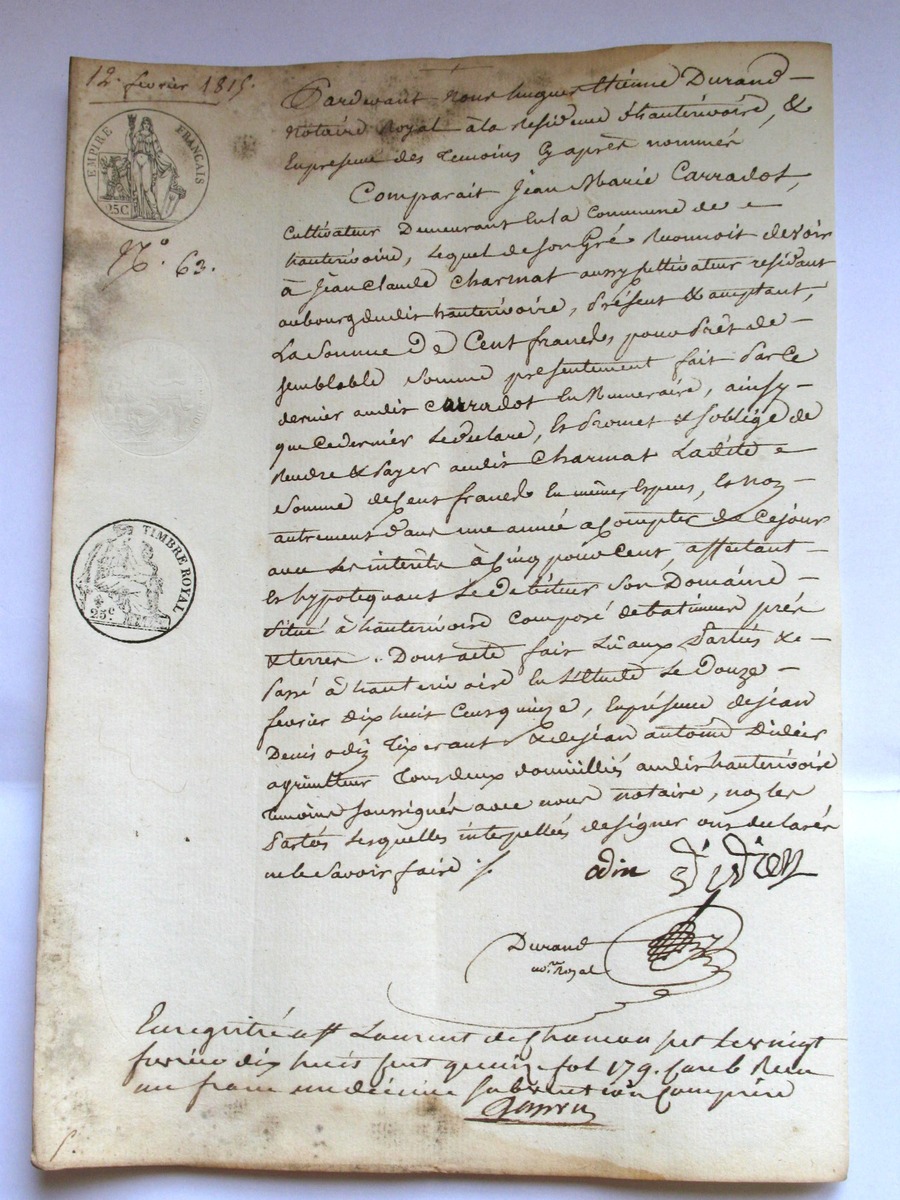 12. fevrier 1815.
EMPIRE FRANÇAIS
25C
N.o 63.
TIMBRE ROYAL
25.c
Pardevant nous hugues Etiénne Durand
Notaire Royal à la Residence d'hauterivoire, &
En presence des Temoins Cy après nommés
Comparait Jean Marie Carradot,
Cultivateur Demeurant En la Commune de
hauterivoire, Lequel de son Gré Reconnoit devoir
à Jean Claude Charmat aussy Cultivateur residant
au bourg dudit hauterivoire, Présent & acceptant,
La Somme De Cent francs, pour Prêt de
semblable Somme presentement fait Par Ce
dernier audit Carradot En Numeraire, ainsy
que Ce dernier Le declare, Et Promet & s'oblige de
Rendre & Payer audit Charmat Ladite
Somme de Cent francs En même Especes, Et non
autrement Dans une année a Compter de Ce jour
avec Les interêts à Cinq pour Cent, affectant
Et hypotequant Le Debiteur Son Domaine
Situé à hauterivoire Composé de batimens prés
& terres. Dont acte fait Lû aux Parties &
Passé à hauterivoire En l'Etude Le Douze
fevrier Dix huit Cent quinze, En présence de jean
Denis odin Tixerant & de jean antoine Didier
agriculteur Tous deux domiciliés audit hauterivoire
Temoins soussignés avec nous notaire, non les
Parties Lesquelles interpellées de signer ont declarés
ne le Savoir faire
odin
Durand
no.re Royal
Enregistré à St Laurent de Chamousset Le vingt
fevrier dix huit Cent quinze fol 179. Reçu
un franc un décime Subvention Comprise